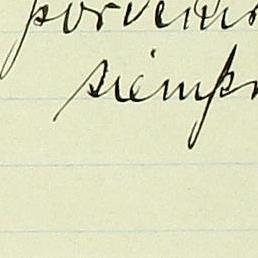 porveni
siemp